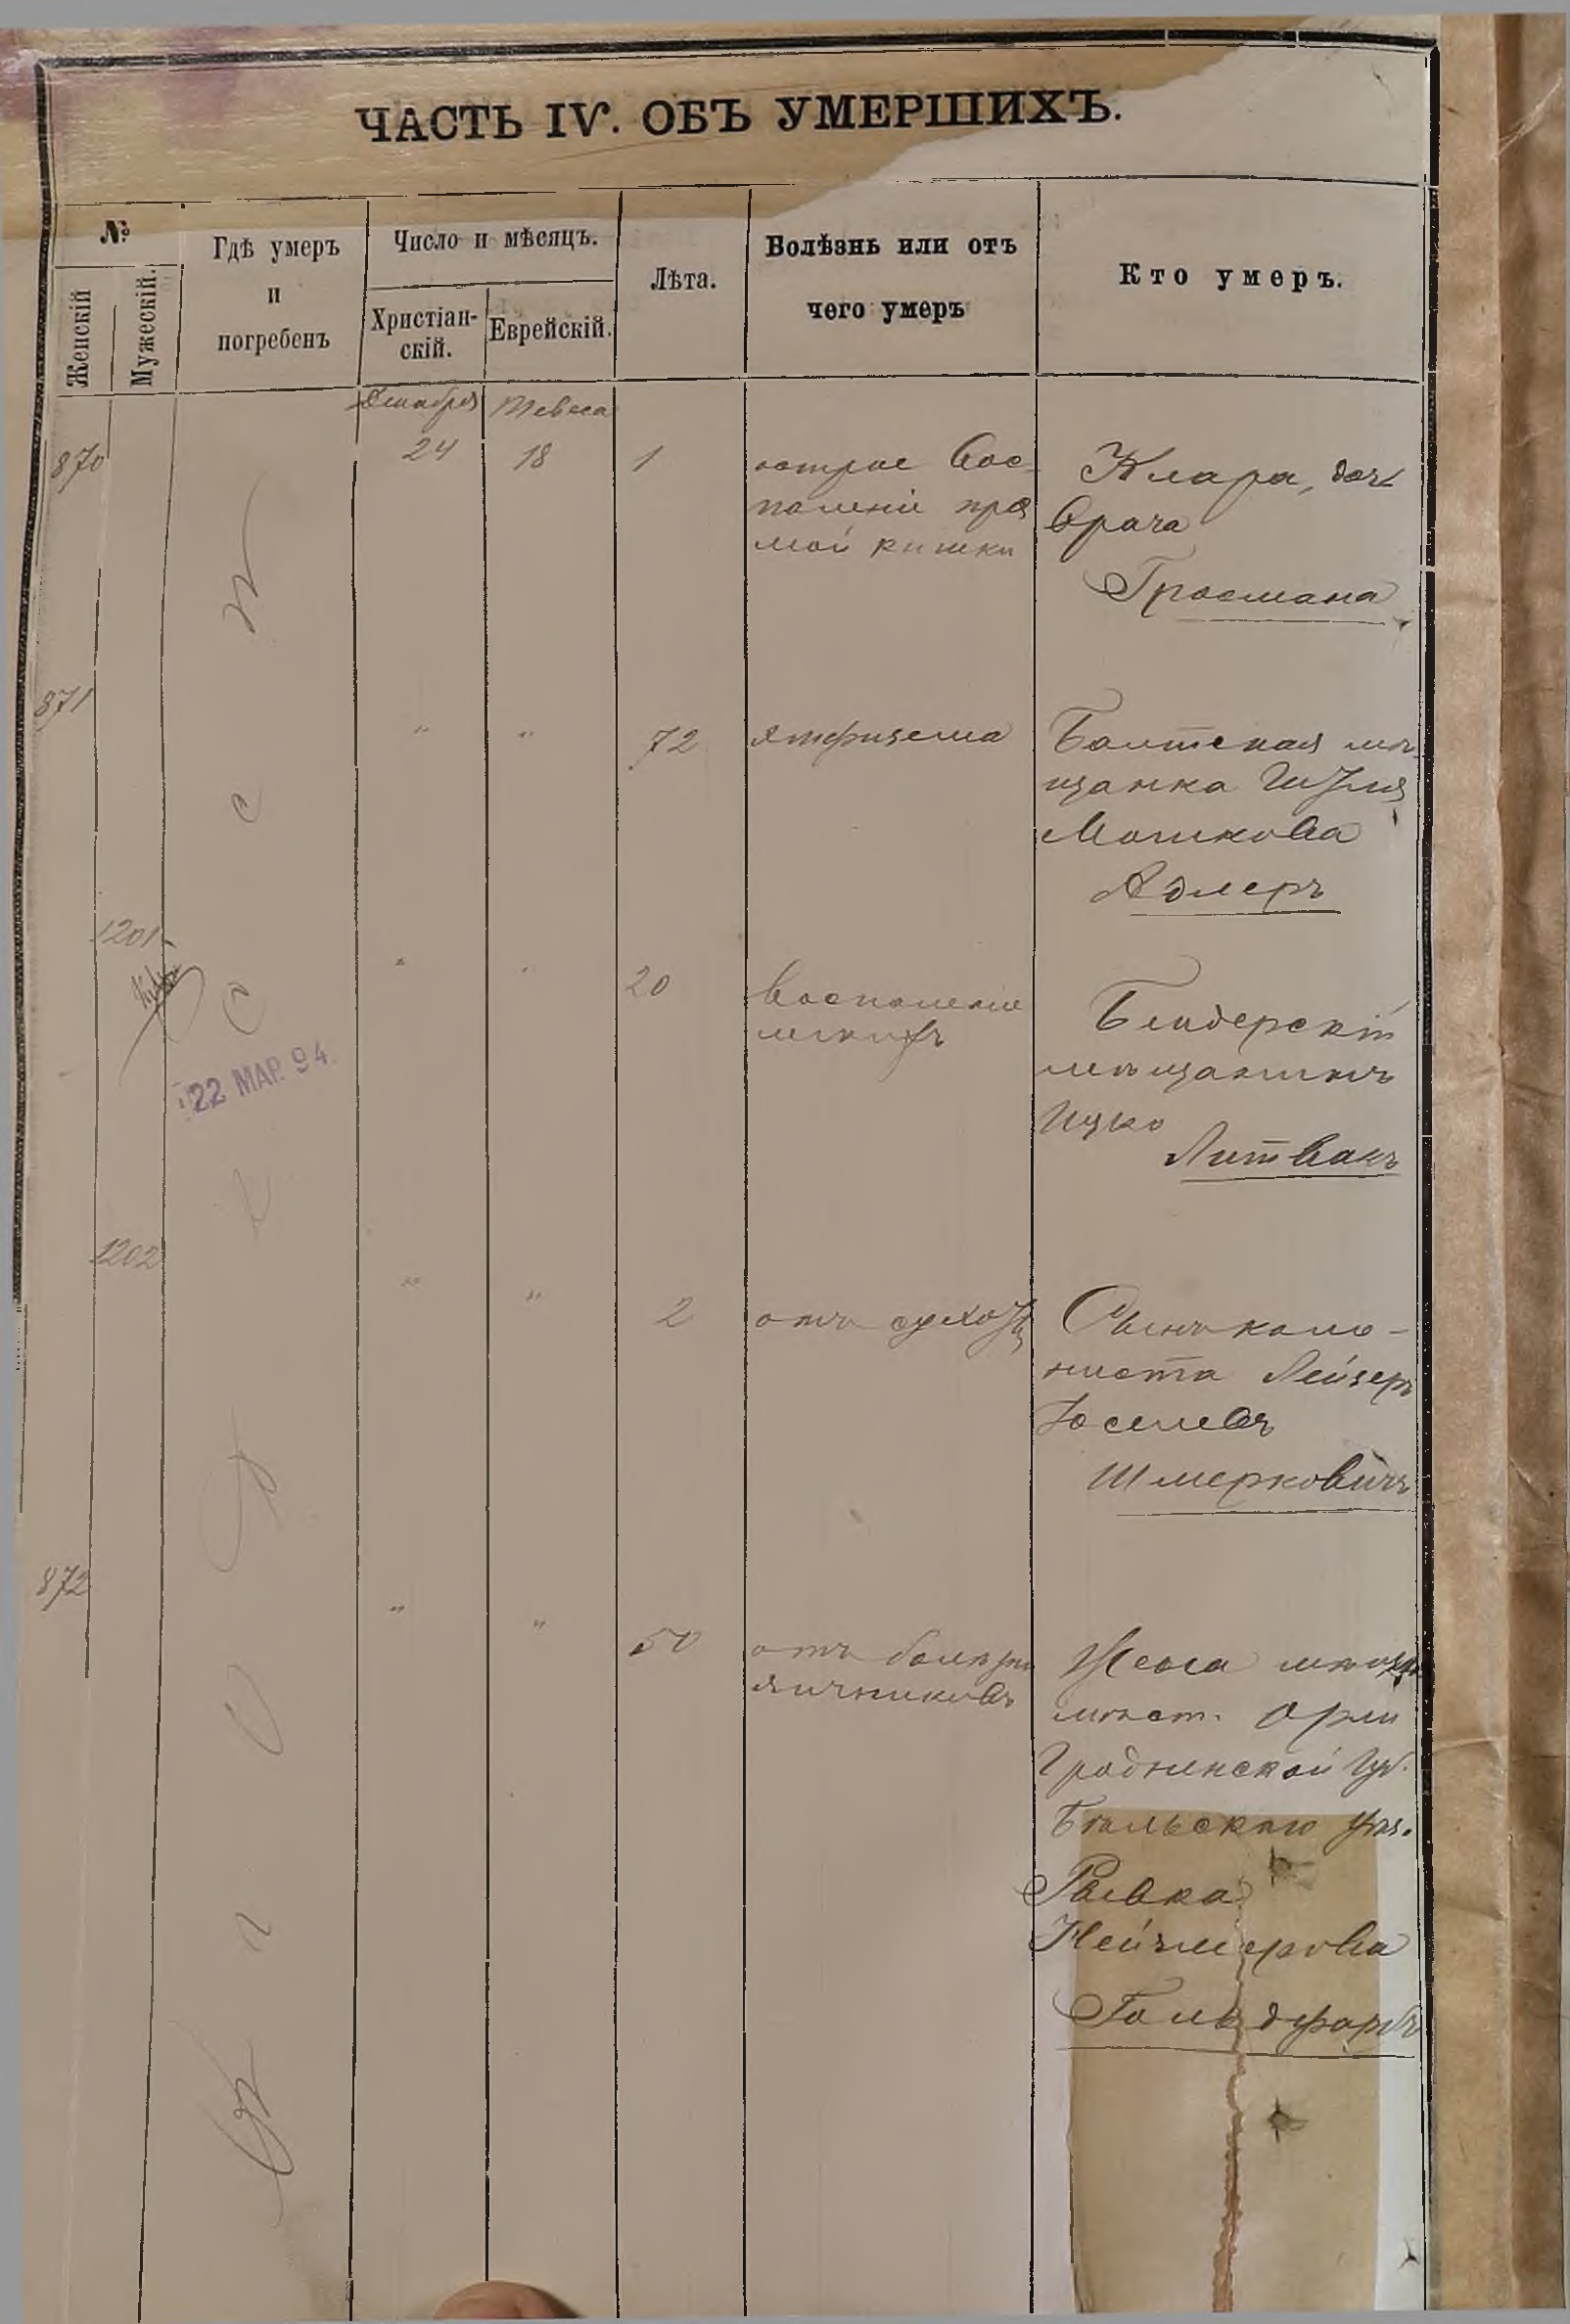 ЧАСТЬ IV. ОБЪ УМЕРШИХЪ.
№
Женскій
Мужескій.
Гдѣ умеръ
и
погребенъ
Число и мѣсяцъ.
Христіан-
скій.
Еврейскій.
Лѣта.
Болѣзнь или отъ
чего умеръ
Кто умеръ.
Декабря Тевеса
870 24 18 1
острое вос-
паленіе пря
мой кишки
Клара, дочь
врача
Гросмана
871 " " 72 Эмфизема
Балтская мѣ
щанка
Мошкова
Адлеръ
1201 " " 20
Воспаленіе
легкихъ
22 МАР. 94.
Бендерскій
мѣщанинъ
Ицко
Литвакъ
1202 " " 2 отъ
Сынъ коло-
ниста Лейзеръ
Іоселевъ
Шмерковичъ
872 " " 50
отъ болѣзни
яичниковъ
Жена мѣщ.
мѣст. Орли
Гродненской Губ.
Бѣльскаго уѣз.
Ривка
Гольдфарбъ